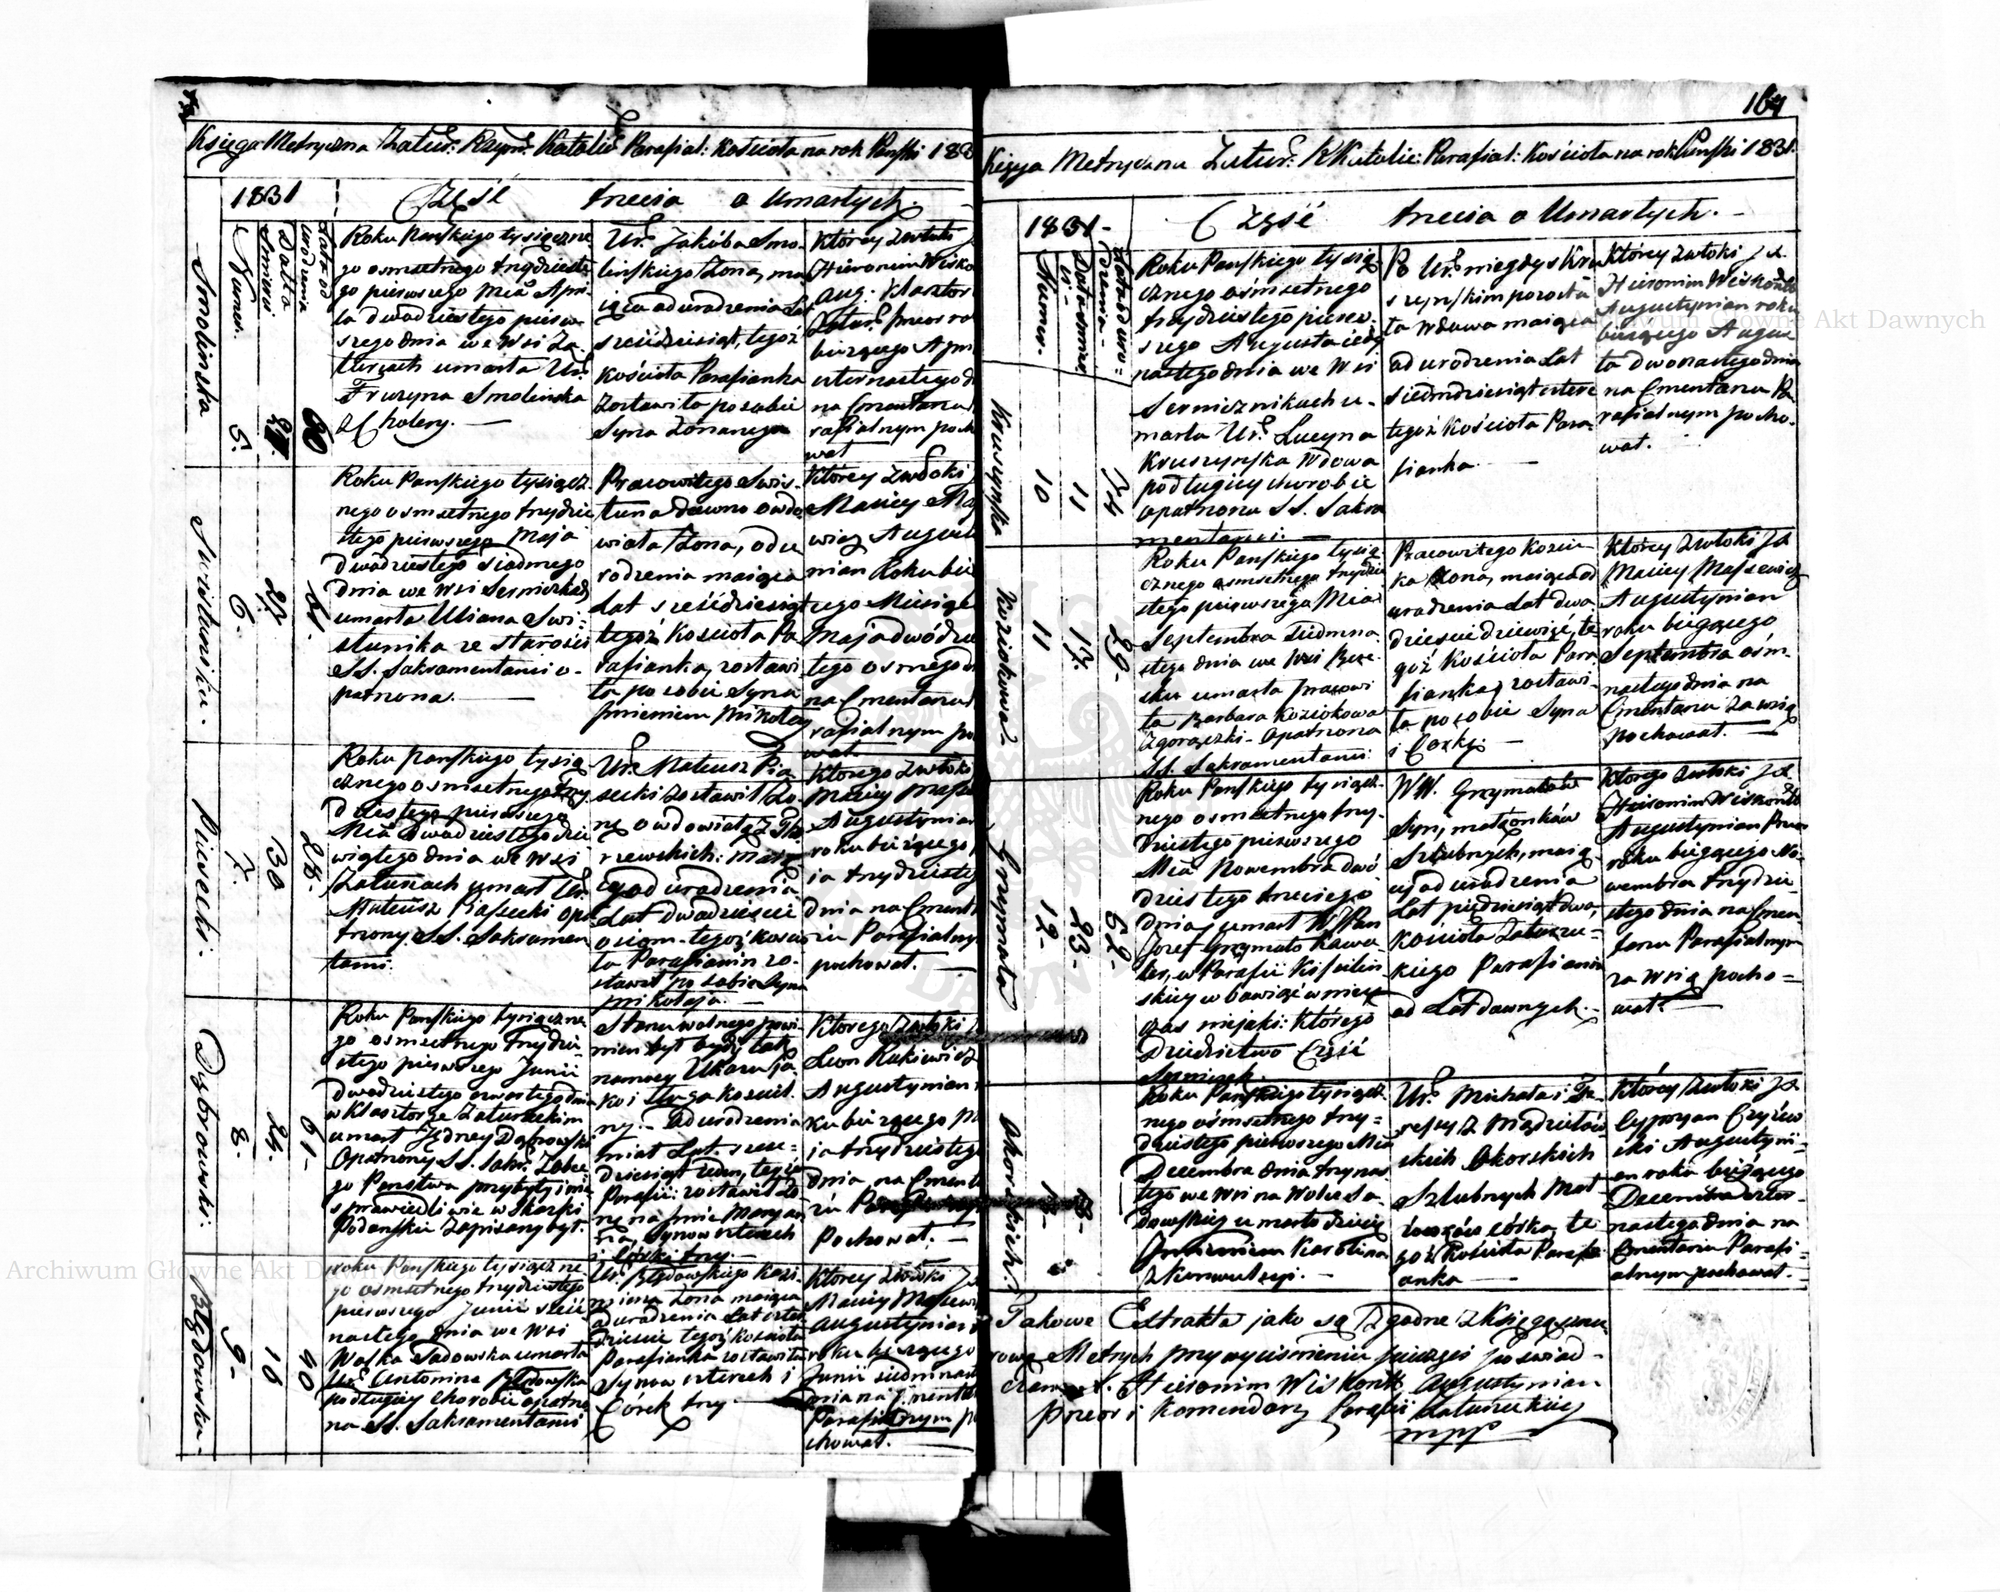 Księga Metryczna Zatur: Rzym: Katolic: Parafial: Kościoła na rok Pański 183
1831
Część trzecia o Umarłych.
Lata od urodzenia
Datta Smierci
Numer.
Smolinska
5.
21.
60
Roku Pańskiego tysiączne
go osmsetnego trzydzieste
go pierwszego Mca Apri
la dwudziestego pierw
szego dnia we Wsi Za
turcach umarła Ur:
Fruzyna Smolinska
z Cholery. —
Ur: Jakóba Smo
linskiego Żona, ma
iąca od urodzenia Lat
sześćdziesiąt, tegoż
Kościoła Parafianka
zostawiła po sobie
Syna Żonanego
Którey Zwłoki
Hieronim Wisko
Aug: Klasztor
Zatur: Przeor ro
ku bieżącego Apri
na Cmentarzu
rafialnym pocho
wał
Swistunika.
6.
27.
61.
Roku Pańskiego tysiącz
nego osmsetnego trzydzie
stego pierwszego Maja
dwudziestego siodmego
dnia we Wsi
umarła Uliana Swi-
stunika ze starości
SS. Sakramentami o-
patrzona. —
Pracowitego Swis-
tuna dawno owdo
wiała Żona, od u
rodzenia maiąca
Lat sześćdziesiąt
tegoż Kościoła Pa
rafianka, zostawi
ła po sobie Syna
Imieniem Mikołay
Którey Zwłoki
Maciey Ma
wicz August
nian Roku bie
cego Miesiąca
Maja dwódzie
tego osmego d
na Cmentarzu
rafialnym po
wał
Piasecki.
7.
30
28.
Roku Pańskiego tysią
cznego osmsetnego trzy
dziestego pierwszego
Mca dwudziestego dzie
wiątego dnia we Wsi
Zaturcach umarł Ur:
Mateusz Piassecki opa
trzony SS. Sakramen
tami.
Ur: Mateusz Pia
secki zostawił Żo-
nę owdowiałą z
rzewskich: maią
cy od urodzenia
Lat dwadzieście
osiom tegoż kościo
ła Parafianin zo-
stawił po sobie Syna
Mikołaja. —
Którego Zwłoki
Maciey Majse
Augustynian
roku bieżącego
ia trzydziesteg
dnia na Cment
rzu Parafialny
pochował. —
Dąbrowski.
8.
24.
61-
Roku Pańskiego tysiączne
go osmsetnego trzydzie-
stego pierwszego Junii
dwudziestego czwartego dnia
w Klasztorze Zatureckim
umarł Jędrzey Dąbrowski
opatrzony SS. Sakr:
go Państwa przybyły imie
sprawiedliwie w Skaski
Podanskie Zapisany był.
Stanu wolnego powi-
nien był bydź tak
namocy Ukazu ja
ko i Sługa Kosciel
ny. Od urodzenia
miał Lat szesc-
dziesiąt Jeden, tegoż
Parafii: zostawił Żo-
nę na Imie Maryan
na, Synow czterech
i Córki trzy. —
Którego Zwłoki
Leon Rukiewicz
Augustynian
ku bieżącego M
ia trzydziesteg
dnia, na Cment
rzu
Pochował. —
Błędowska-
9-
16
40
roku Pańskiego tysiączne
go osmsetnego trzydziestego
pierwszego Junii szesć
nastego dnia we Wsi
Wolka Sadowska umarła
Ur: Antonina Błędowska
po długiey chorobie opatrzo
na SS. Sakramentami
Ur: Błędowskiego Kazi
mierza Żona maiąca
od urodzenia Lat czter
dzieście tegoż Kościoła
Parafianka zostawiła
Synow czterech i
Córek trzy —
Którey Zwłoki
Maciey Majsewi
Augustynian
roku bieżącego
Junii siedmnast
dnia na Cmenta
Parafialnym po
chował. —
164
Księga Metryczna Zatur: R Katolic: Parafial: Kościoła na rok Pański 1831.
1831.
Część trzecia o Umarłych. —
Lata od uro=
dzenia
Data smier
ci
Numer.
Kruszynska
10
11
74
Roku Pańskiego tysią
cznego ośmsetnego
trzydziestego pierw-
szego Augusta iede
nastego dnia we Wsi
Siernicznikach u-
marła Ur: Lucyna
Kruszynska Wdowa
po długiey chorobie
opatrzona SS. Sakra
mentami. —
Po Ur: niegdys Kru
szynskim pozosta
ła Wdowa maiąca
od urodzenia Lat
siedmdziesiąt cztere
tegoż Kościoła Para-
fianka —
Którey Zwłoki JX.
Hieronim Wiskontt
Augustynian roku
bieżącego Augus
ta dwonastego dnia
na Cmentarzu Pa
rafialnym pocho-
wał.
Koziokowa
11
17.
29-
Roku Pańskiego tysią
cznego osmsetnego trzydzie
stego pierwszego Mca
Septembra Siedmna-
stego dnia we Wsi
umarła pracowi
ta Barbara Koziokowa
z gorączki Opatrzona
SS. Sakramentami
Pracowitego Kozio-
ka Żona, maiąca od
urodzenia Lat dwa
dzieście dziewięć, te
goż Kościoła Para
fianka, zostawi-
ła po sobie Syna
i Corkę. —
Którey Zwłoki JX.
Maciey Majsewicz
Augustynian
roku bieżącego
Septembra ośm-
nastego dnia na
Cmentarzu za wsią
pochował. —
Grzymała
12-
23-
52-
Roku Pańskiego tysiącz-
nego osmsetnego trzy-
dziestego pierwszego
Mca Nowembra dwó
dziestego trzeciego
dnia, umarł W: Pan
Jozef Grzymała Kawa
ler, w Parafii Kisielin
skiey w bawiąć w niey
czas niejaki: Którego
Dziedzictwo Część
WW. Grzymałów
Syn, małżonków
Szlubnych, maią
cy od urodzenia
Lat pięćdziesiąt dwa,
Kościoła Zaturze-
ckiego Parafianin
od Lat dawnych. —
Którego Zwłoki JX
Hieronim Wiskontt
Augustynian Przeor
roku bieżącego No-
wembra trzydzie
stego dnia na Cmen
tarzu Parafialnym
za Wsią pocho-
wał. —
Okorskich.
13-
Roku Pańskiego tysiącz
nego ośmsetnego trzy=
dziestego pierwszego Mca
Decembra dnia trzynas
tego we Wsi na Wolce Sa-
dowskiej umarło dziecię
Imieniem Karolina
z Konwulsyi. —
Ur: Michała i Te
resy z
skich Okorskich
Szlubnych Mał
żonków córka, te
goż Kościoła Parafi
anka —
Którey Zwłoki JX
Cypryan Czyżew
ski Augustyni-
an roku bieżącego
Decembra czter-
nastego dnia na
Cmentarzu Parafi-
alnym pochował. —
Takowe Extrakta jako są Zgodne z Księgą
Metrycz przy wyciśnieniu pieczęci poświad-
czam X. Hieronim Wiskontt Augustynian
Przeor i Komendarz Parafii Zatureckiey
mpp
Archiwum Główne Akt Dawnych
Archiwum Główne Akt Dawnych